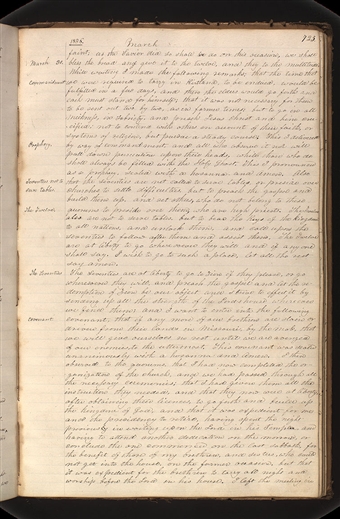 1836.
March
723
faint, as the Savior did so shall we do on this occasion, we shall
March 30. bless the bread and give it to the twelve, and they to the multitude.
While waiting I made the following remarks, that the time that
Commandment we were required to tarry in Kirtland to be endued, would be
fulfilled in a few days, and then the elders would go forth and
each must stand for himself, that it was not necessary for them
to be sent out two by two, as in former times, but to go in all
meekness, in sobriety, and preach Jesus Christ and him cru-
cified; not to contend with others on account of their faith or
systems of religion, but pursue a steady course. This I delivered
by way of commandment, and all who observe it not will
pull down persecution upon their heads, while those who do
Prophecy. shall always be filled with the Holy Ghost. This I pronounced
as a prophecy, sealed with hosanna and amen. Also
Seventies not to that the seventies are not called to serve tables, or preside over
serve tables. churches to settle difficulties, but to preach the gospel and
build them up, and set others, who do not belong to these
The Twelve. quorums to preside over them, who are high priests. The twelve
also are not to serve tables, but to bear the keys of the kingdom
to all nations, and unlock them, and call upon the
seventies to follow after them and assist them. The twelve
are at liberty to go wheresoever they will and if any one
shall say, I wish to go to such a place, let all the rest
say amen.
The Seventies The seventies are at liberty to go to Zion if they please, or go
wheresoever they will and preach the gospel and let the re-
demption of Zion be our object, and strive to effect it by
sending up all the strength of the Lord's house, wherever
we find them, and I want to enter into the following
covenant. covenant, that if any more of our brethren are slain or
driven from their lands in Missouri, by the mob, that
we will give ourselves no rest until we are avenged
of our enemies to the uttermost. This covenant was sealed
unanimously with a hosanna and amen. I then
observed to the quorums that I had now completed the or-
ganization of the church, and we had passed through all
the necessary ceremonies, that I had given them all the
instruction they needed, and that they now were at liberty
after obtaining their licenses, to go forth and build up
the kingdom of God, and that it was expedient for me
and the presidency to retire, having spent the night
previously in waiting upon the Lord in his temple, and
having to attend another dedication on the morrow, or
conclude the one commenced on the last sabbath, for
the benefit of those of my brethren and sisters, who could
not get into the house, on the former occasion, but that
it was expedient for the brethren to tarry all night and
worship before the Lord in his house. I left the meeting in